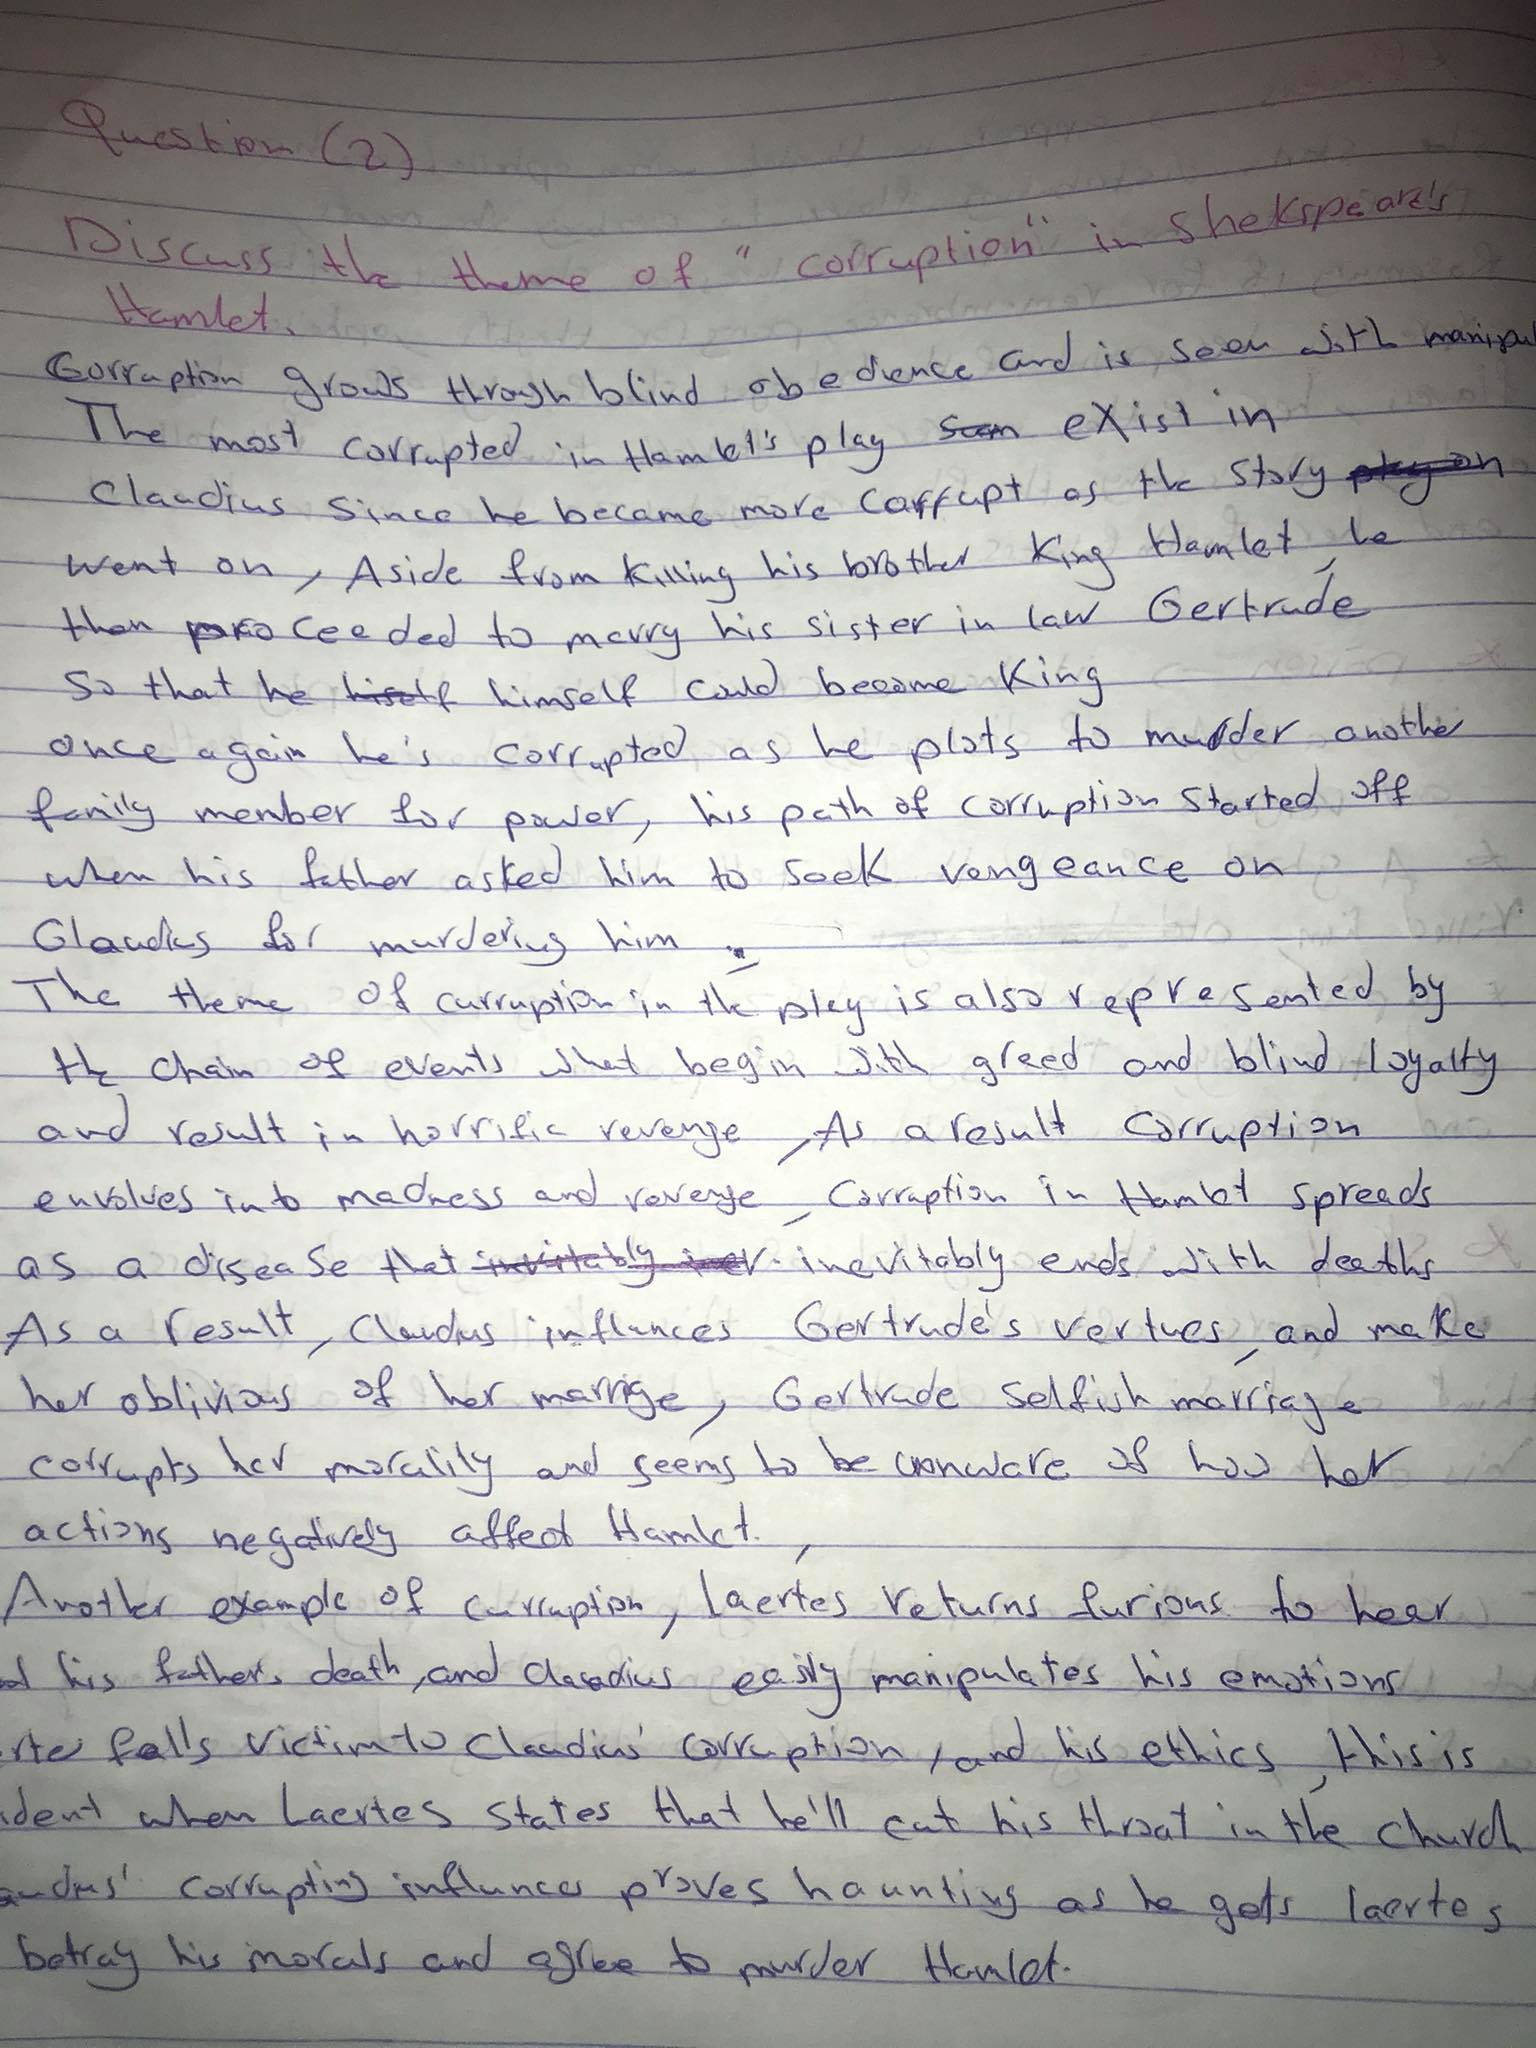 Question (2)
Discuss the theme of "corruption" in Shekspeare's
Hamlet.
Corruption grows throgh blind obedience and is seen with manipul
The most corrupted in Hamlet's play seen exist in
Claudius since he became more corrupt as the story play on
went on, Aside from killing his brother King Hamlet, he
then proceeded to marry his sister in law Gertrude
so that he hiself himself could become King
once again he's corrupted as he plots to murder another
family member for power, his path of corruption started off
when his father asked him to seek vengeance on
Claudius for murdering him.
The theme of curruption in the play is also represented by
the chain of events what begin with greed and blind loyalty
and result in horrific revenge, As a result corruption
envolves into madness and revenge, Corruption in Hamlet spreads
as a disease that invitably iner inevitably ends with deaths
As a result, Claudius influnces Gertrude's vertues, and make
her oblivious of her marrige, Gertrude selfish marriage
corrupts her morality and seems to be unaware of how her
actions negatively affect Hamlet.,
Another example of curruption, Laertes returns furious to hear
of his father's death, and Claudius easily manipulates his emotions
erte falls victim to Claudius' corruption, and his ethics, this is
ident when Laertes states that he'll cut his throat in the church
audius' corrupting influnces proves haunting as he gets laertes
betray his morals and agree to murder Hamlet.